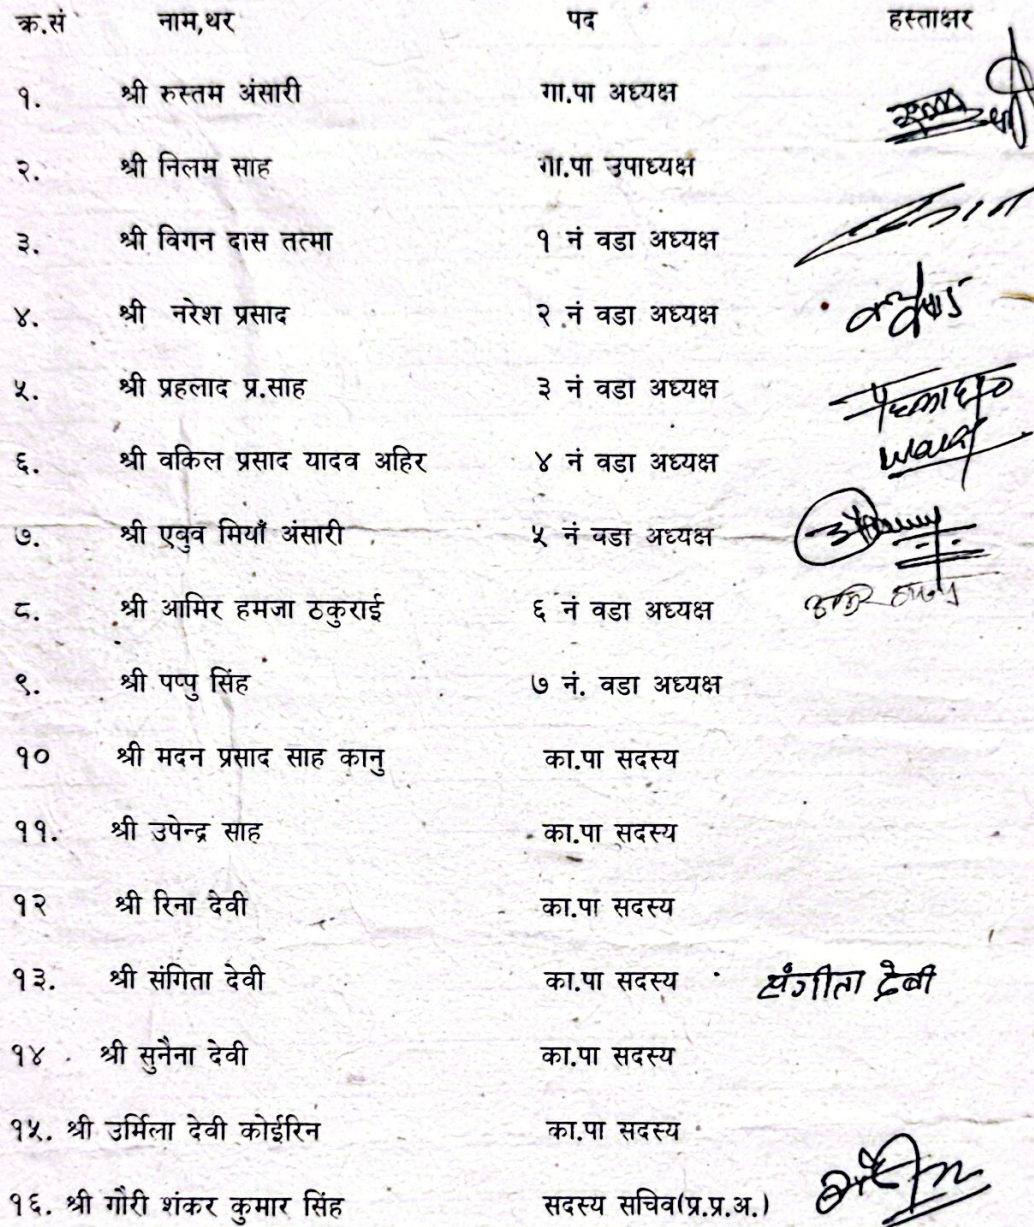 क्र.सं नाम,थर पद हस्ताक्षर
१. श्री रुस्तम अंसारी गा.पा अध्यक्ष
२. श्री निलम साह गा.पा उपाध्यक्ष
३. श्री विगन दास तत्मा १ नं वडा अध्यक्ष
४. श्री नरेश प्रसाद २ नं वडा अध्यक्ष
५. श्री प्रहलाद प्र.साह ३ नं वडा अध्यक्ष
६. श्री वकिल प्रसाद यादव अहिर ४ नं वडा अध्यक्ष
७. श्री एबुव मियाँ अंसारी ५ नं वडा अध्यक्ष
८. श्री आमिर हमजा ठकुराई ६ नं वडा अध्यक्ष
९. श्री पप्पु सिंह ७ नं. वडा अध्यक्ष
१० श्री मदन प्रसाद साह कानु का.पा सदस्य
११. श्री उपेन्द्र साह का.पा सदस्य
१२ श्री रिना देवी का.पा सदस्य
१३. श्री संगिता देवी का.पा सदस्य संगीता देबी
१४ . श्री सुनैना देवी का.पा सदस्य
१५. श्री उर्मिला देवी कोईरिन का.पा सदस्य
१६. श्री गौरी शंकर कुमार सिंह सदस्य सचिव(प्र.प्र.अ.)